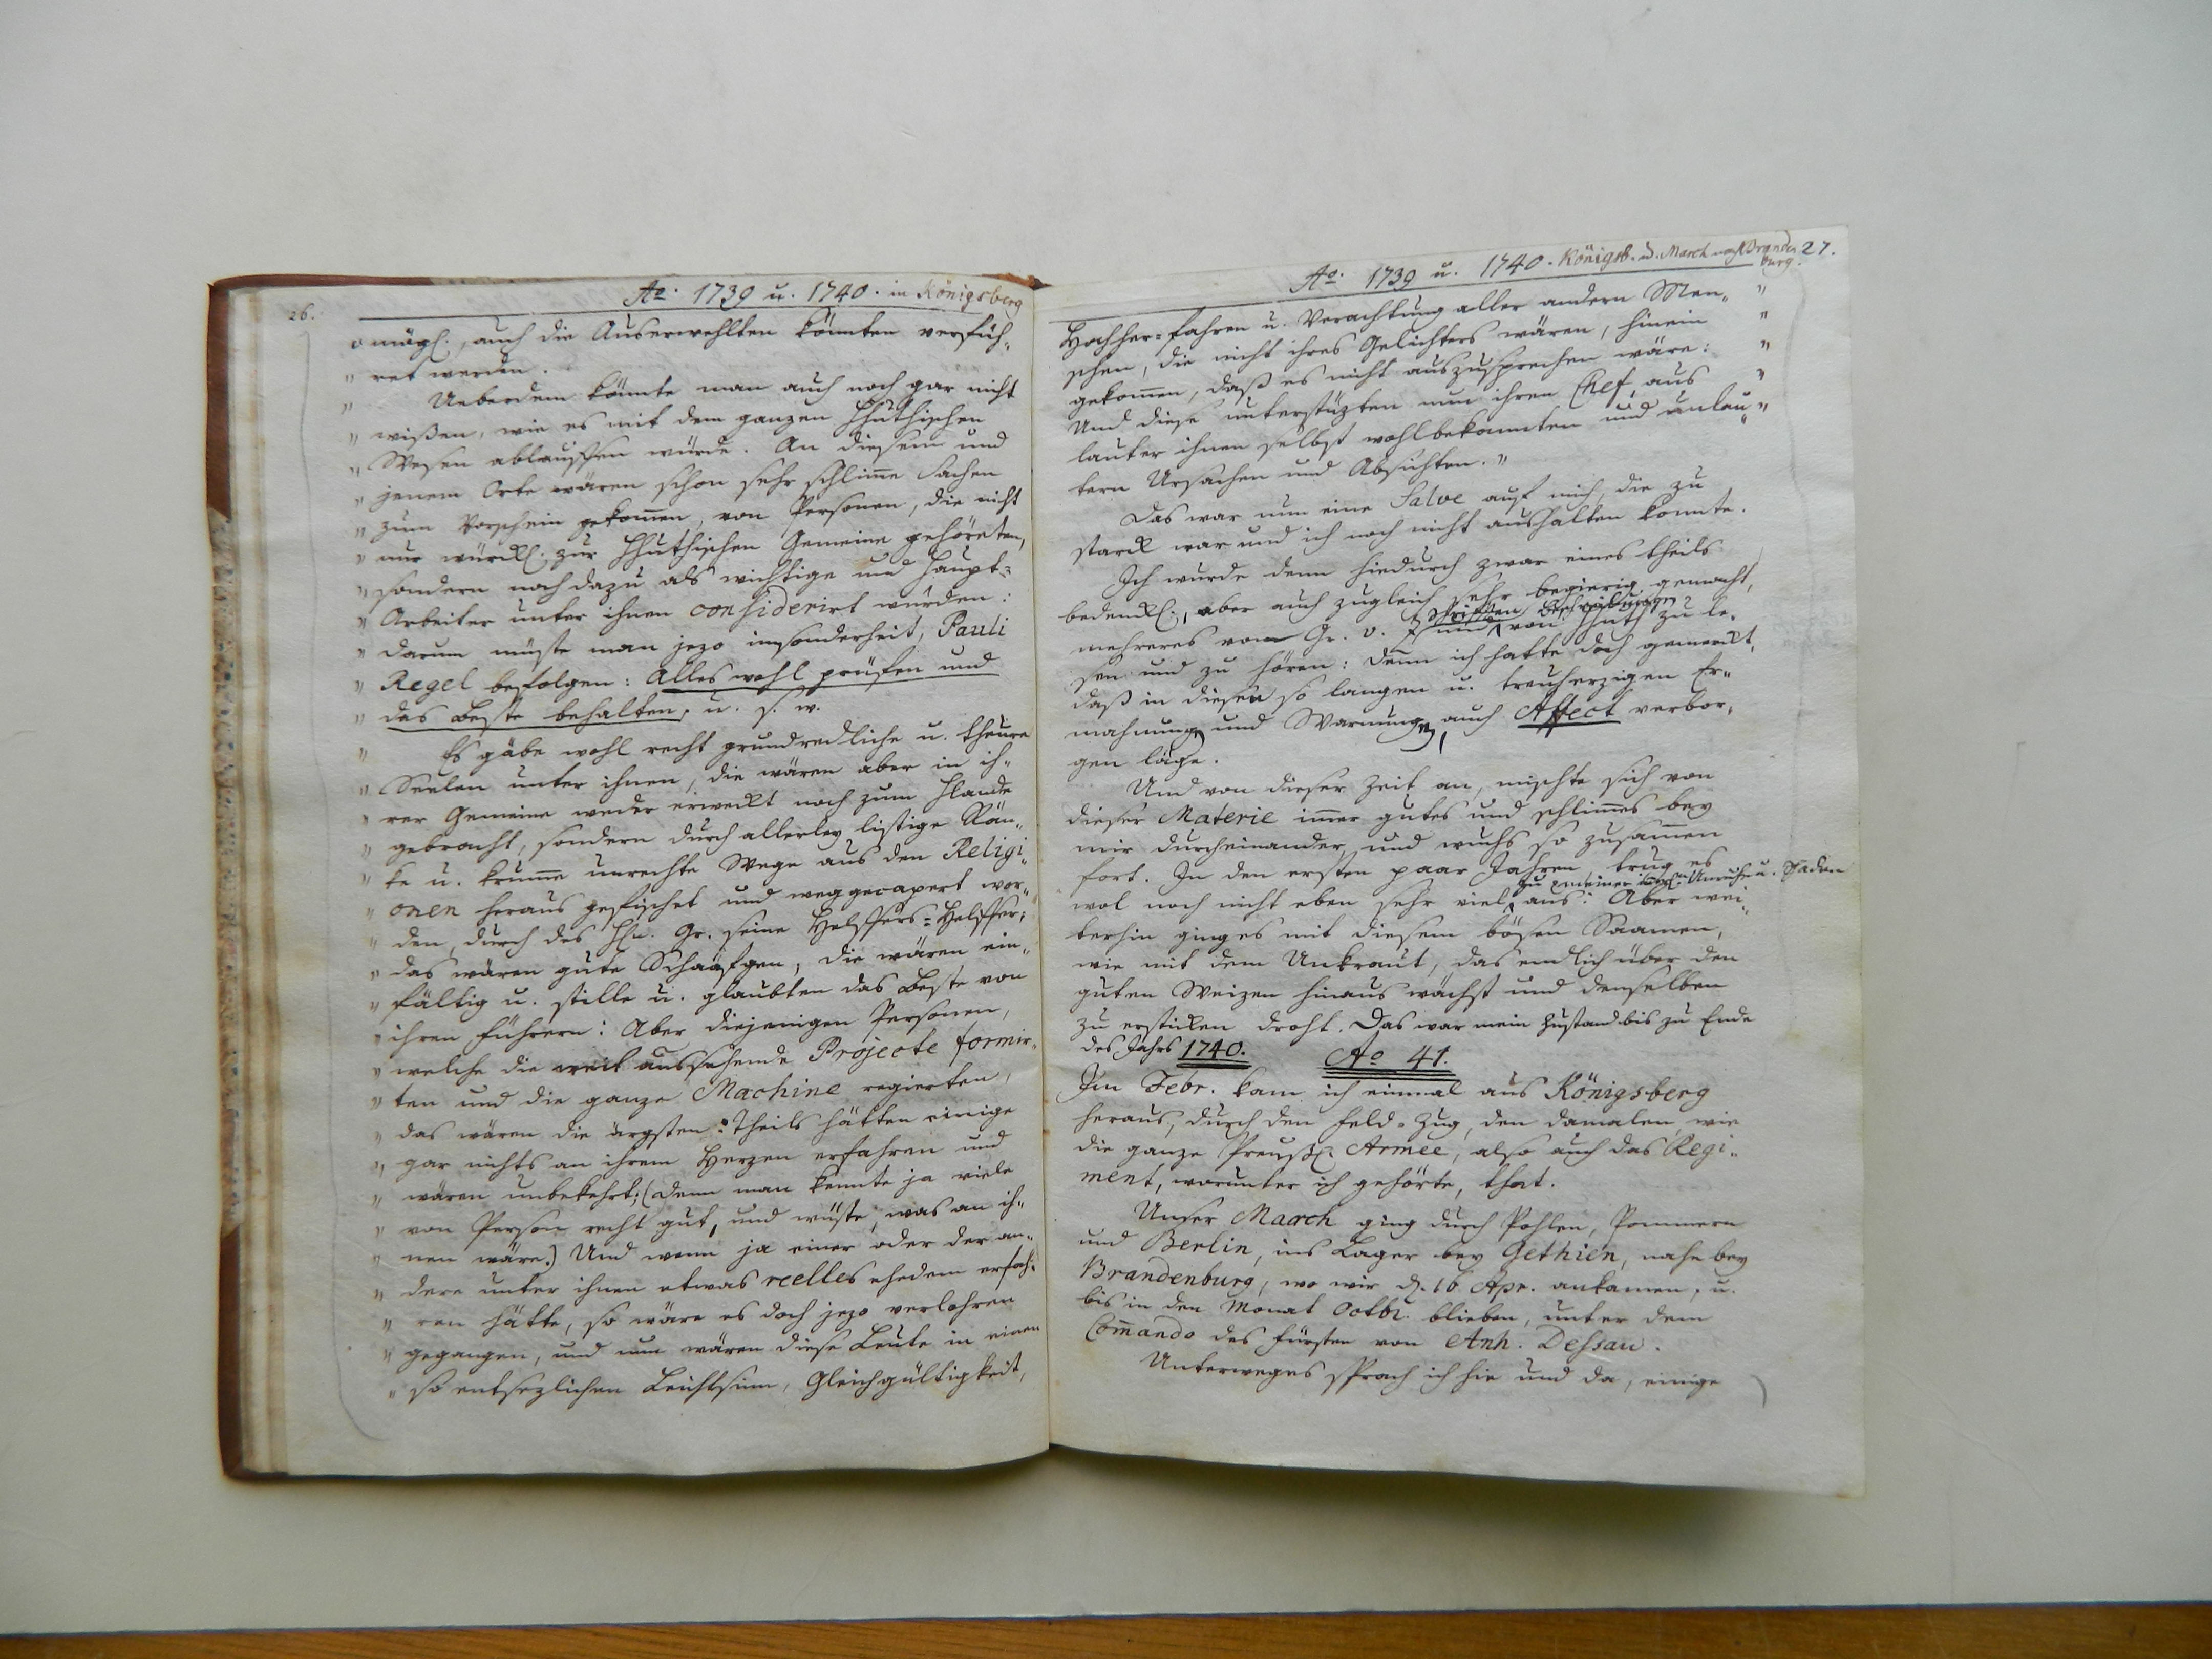 26.
Ao. 1739 u. 1740. in Königsberg
mögl., auch die Auserwehlten könnten verfüh„
„ ret werden.
„ Ueberdem könnte man auch noch gar nicht
„ wißen, wie es mit dem ganzen Hhuthischen
„ Wesen ablauffen würde. An diesem und
„ jenem Orte wären schon sehr schlim̅e Sachen
„ zum Vorschein gekom̅en, von Personen, die nicht
„ nur würckl. zur Hhuthischen Gemeine gehöreten,
„ sondern noch dazu als wichtige und Haupt=
„ Arbeiter unter ihnen considerirt würden:
„ darum müste man jezo insonderheit, Pauli
„ Regel befolgen: Alles wohl prüfen und
„ das Beste behalten, u. s. w.
„ Es gäbe wohl recht grundredliche u. theure
„ Seelen unter ihnen, die wären aber in ih„
„ rer Gemeine weder erweckt noch zum Glaube
„ gebracht, sondern durch allerley listige Rän„
„ ke u. krum̅e unrechte Wege aus den Religi„
„ onen heraus gefischet und weggecapert wor„
„ den, durch des Hn. Gr. seine Helffers=Helffer;
„ das wären gute Schääfgen, die wären ein„
„ fältig u. stille u. glaubten das Beste von
„ ihren Führern: Aber diejenigen Personen,
„ welche die weit aussehende Projecte formir„
„ ten und die ganze Machine regierten,
„ das wären die ärgsten: Theils hätten einige
„ gar nichts an ihrem Herzen erfahren und
„ wären unbekehrt; (denn man kennte ja viele
„ von Person recht gut, und wüste, was an ih„
„ nen wäre.) Und wenn ja einer oder der an„
„ dere unter ihnen etwas reelles ehedem erfah„
„ ren hätte, so wäre es doch jezo verlohren
„ gegangen, und nun wären diese Leute in einen
„ so entsezlichen Leichtsinn, Gleichgültigkeit,
Ao. 1739 u. 1740. Königsb. u. March nach Branden
burg. 27.
Hochher=fahren u. Verachtung aller andern Men„ „
schen, die nicht ihres Gelichters wären, hinein „
gekom̅en, daß es nicht auszusprechen wäre: „
Und diese unterstüzten nun ihren Chef aus „
lauter ihnen selbst wohlbekannten und unlau„ „
tern Ursachen und Absichten. „
Das war nun eine Salve auf mich, die zu
starck war und ich noch nicht aushalten konnte.
Ich wurde denn hiedurch zwar eines theils
bedenckl., aber auch zugleich sehr begierig gemacht,
Schriften
mehreres vom Gr. v. Z. und von Hhuth zu le„
sen und zu hören: denn ich hatte doch gemerckt,
daß in diesen so langen u. treuherzigen Er„
mahnung und Warnung, auch Affect verbor„
gen läge.
Und von dieser Zeit an, mischte sich von
dieser Materie im̅er gutes und schlim̅es bey
mir durcheinander und wuchs so zusam̅en
fort. In den ersten paar Jahren trug es
zu meiner Unruhe u. Schaden
wol noch nicht eben sehr viel aus: Aber wei„
terhin ging es mit diesem bösen Saamen,
wie mit dem Unkraut, das endlich über den
guten Weizen hinaus wächst und denselben
zu ersticken droht. Das war mein Zustand bis zu Ende
des Jahrs 1740. Ao 41.
Im Febr. kam ich einmal aus Königsberg
heraus, durch den Feld=Zug, den damalen, wie
die ganze Preußl. Armee, also auch das Regi„
ment, worunter ich gehörte, that.
Unser March ging durch Pohlen, Pommern
und Berlin, ins Lager bey Gethien, nahe bey
Brandenburg, wo wir d. 16. Apr. ankamen, u.
bis in den Monat Octbr. blieben, unter dem
Com̅ando des Fürsten von Anh. Dessau.
Unterweges sprach ich hie und da, einige